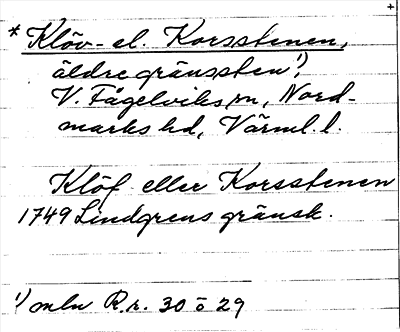 +
* Klöv- el. Korsstenen,
äldre gränssten 1)
V. Fågelviks sn, Nord-
marks hd, Värml. l.
Klöf eller Korsstenen
1749 Lindgrens gränsk.
1) mln R.r. 30 o 29